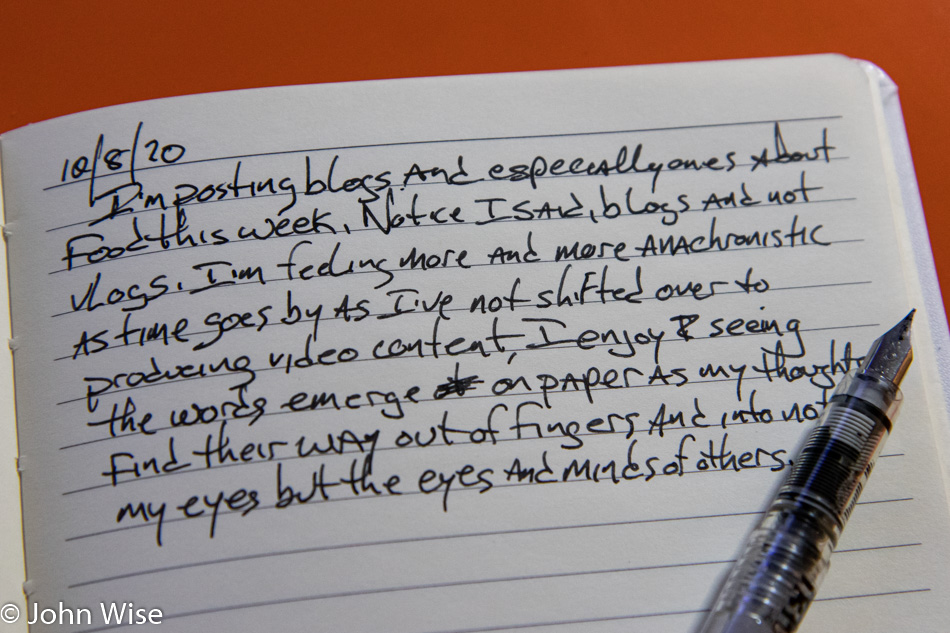 10/8/20
I'm posting blogs. And especially ones about
Food this week. Notice I said, blogs and not
vlogs. I'm feeling more and more anachronistic
as time goes by as I've not shifted over to
producing video content, I enjoy seeing
the words emerge on paper as my thoughts
find their way out of fingers and into not
my eyes but the eyes and minds of others.
© John Wise